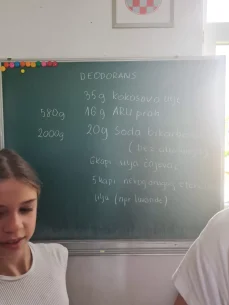 DEODORANS
35g kokosovo ulje
580g 16g ARU prah
2000g 20g Soda bikarbona
6 kapi ulja čajnog
5 kapi nekog drugog eter.
ulja (npr. lavande)